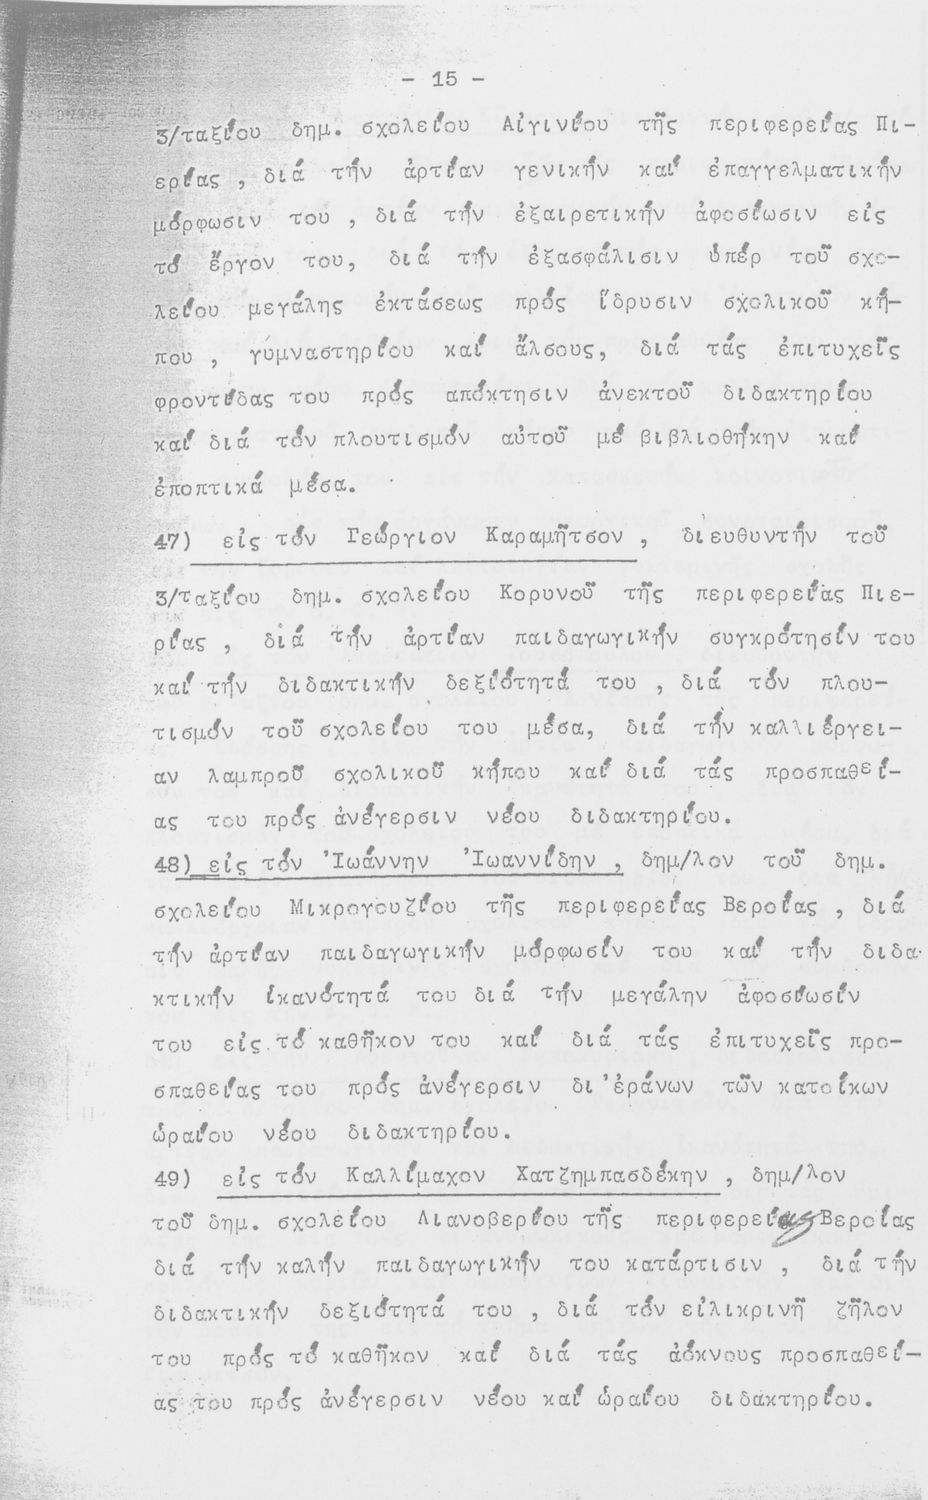 - 15 -
3/ταξίου δημ. σχολείου Αἰγινίου τῆς περιφερείας Πι-
ερίας , διά τήν ἀρτίαν γενικήν καί ἐπαγγελματικήν
μόρφωσιν του , διά τήν ἐξαιρετικήν ἀφοσίωσιν εἰς
τό ἔργον του, διά τήν ἐξασφάλισιν ὑπέρ τοῦ σχο-
λείου μεγάλης ἐκτάσεως πρός ἵδρυσιν σχολικοῦ κή-
που , γυμναστηρίου καί ἄλσους, διά τάς ἐπιτυχεῖς
φροντίδας του πρός ἀπόκτησιν ἀνεκτοῦ διδακτηρίου
καί διά τόν πλουτισμόν αὐτοῦ μέ βιβλιοθήκην καί
ἐποπτικά μέσα.
47) εἰς τόν Γεώργιον Καραμῆτσον , διευθυντήν τοῦ
3/ταξίου δημ. σχολείου Κορυνοῦ τῆς περιφερείας Πιε-
ρίας , διά τήν ἀρτίαν παιδαγωγικήν συγκρότησίν του
καί τήν διδακτικήν δεξιότητά του , διά τόν πλου-
τισμόν τοῦ σχολείου του μέσα, διά τήν καλλιέργει-
αν λαμπροῦ σχολικοῦ κήπου καί διά τάς προσπαθεί-
ας του πρός ἀνέγερσιν νέου διδακτηρίου.
48) εἰς τόν Ἰωάννην Ἰωαννίδην , δημ/λον τοῦ δημ.
σχολείου Μικρογουζίου τῆς περιφερείας Βεροίας , διά
τήν ἀρτίαν παιδαγωγικήν μόρφωσίν του καί τήν διδα-
κτικήν ἱκανότητά του διά τήν μεγάλην ἀφοσίωσίν
του εἰς τό καθῆκον του καί διά τάς ἐπιτυχεῖς προ-
σπαθείας του πρός ἀνέγερσιν δι'ἐράνων τῶν κατοίκων
ὡραίου νέου διδακτηρίου.
49) εἰς τόν Καλλίμαχον Χατζημπασδέκην , δημ/λον
τοῦ δημ. σχολείου Λιανοβερίου τῆς περιφερείας Βεροίας
διά τήν καλήν παιδαγωγικήν του κατάρτισιν , διά τήν
διδακτικήν δεξιότητά του , διά τόν εἰλικρινῆ ζῆλον
του πρός τό καθῆκον καί διά τάς ἀόκνους προσπαθεί-
ας του πρός ἀνέγερσιν νέου καί ὡραίου διδακτηρίου.